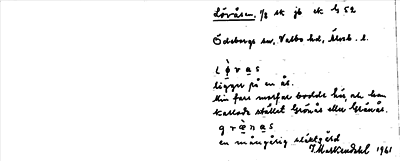 Lövåsen, 1/8 sk jb ek b 52
Ödeborgs sn, Valbo hd, Älvsb. l.
l ö̀ v a s
ligger på en ås.
Min fars morfar bodde här, och han
kallade stället Grönås eller Grånås.
g r æ̀ n a s
en mångårig släktgård
1961